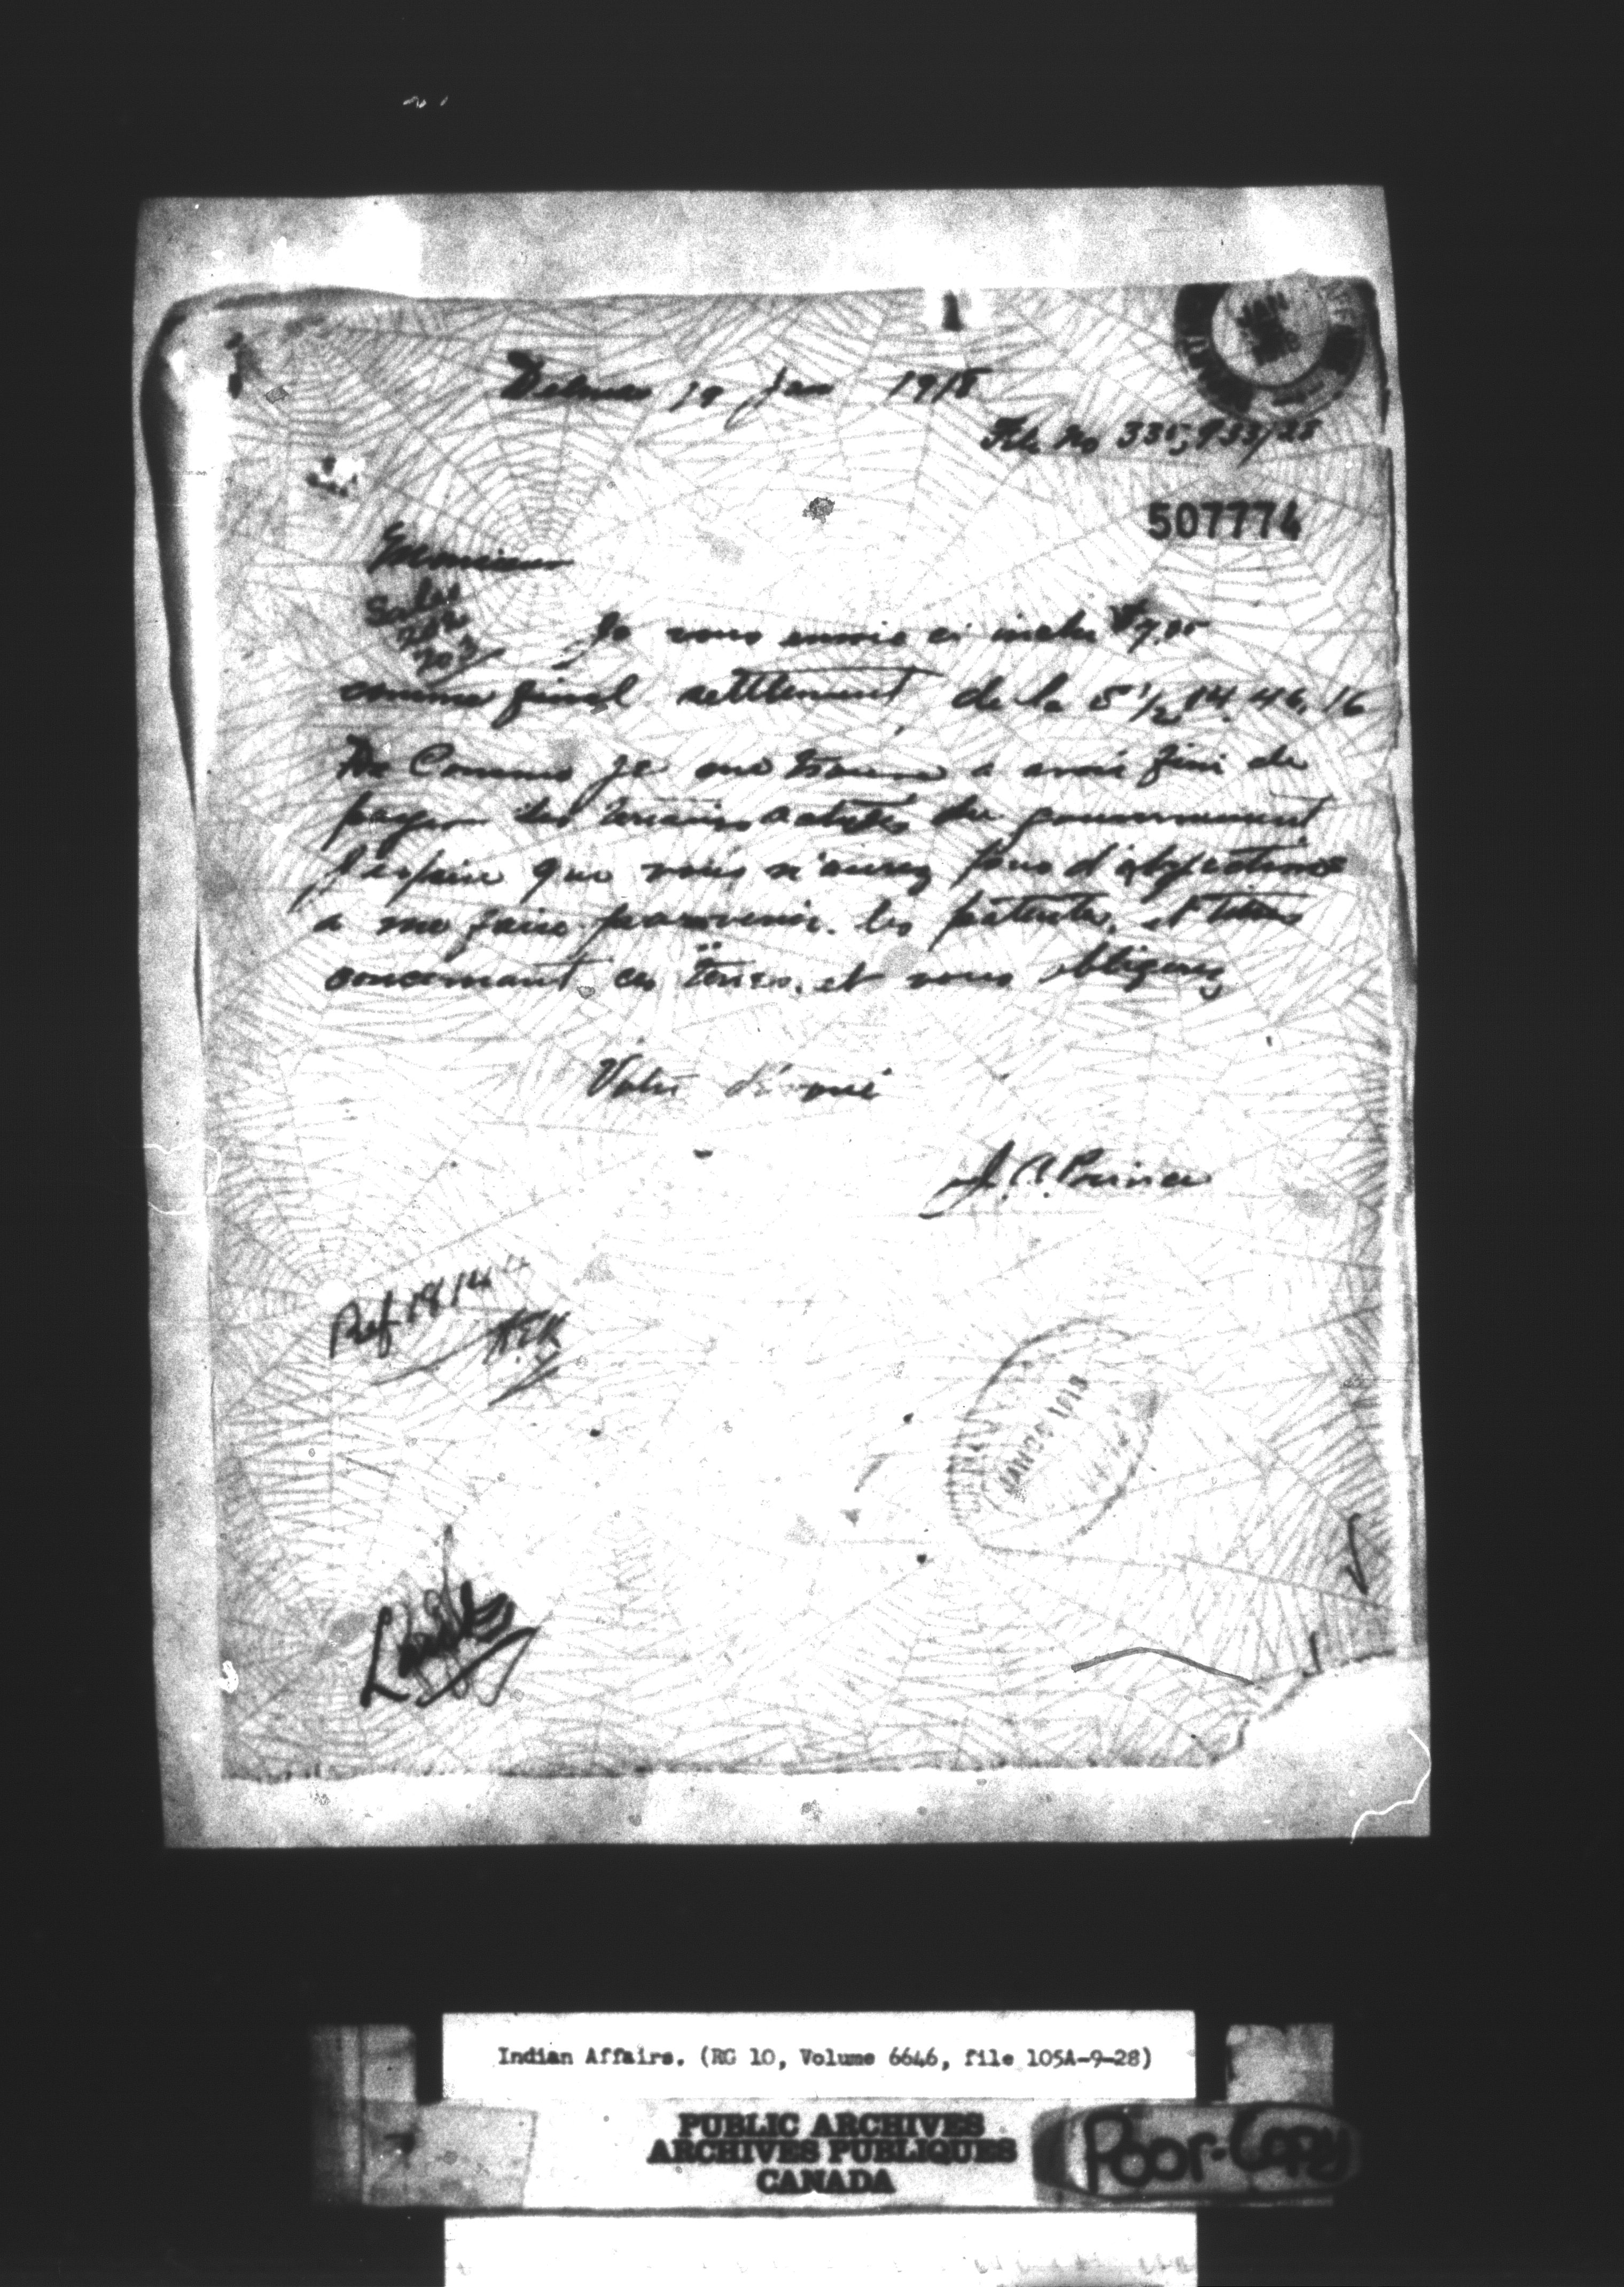 Delmas 19 Jan 1918
File No 335,933/28
507774
Monsieur
Sales
202
203
Je vous envoie ci inclu $7.05
comme final settlement de la S 1/2 14. 46. 16
De Comme je me trouve a avoir fini de
payer les terrains achetés du gouvernement
J'espère que vous n'aurez pas d'objections
a me faire parvenir les patentes, et titres
concernant ces terres. et vous obligerez
Votre dévoué
J. A. Poirier
Ref 1814
JAN 1918
Indian Affairs. (RG 10, Volume 6646, file 105A-9-28)
PUBLIC ARCHIVES
ARCHIVES PUBLIQUES
CANADA
Poor-Copy